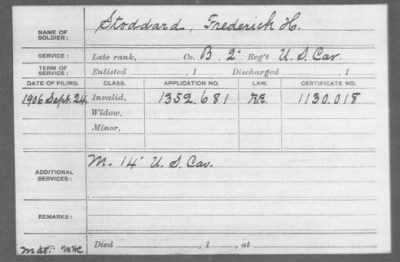 NAME OF SOLDIER: Stoddard, Frederick H.
SERVICE: Late rank, Co. B, 2" Reg't U.S. Cav.
TERM OF SERVICE: Enlisted , 1 Discharged , 1
DATE OF FILING. CLASS. APPLICATION NO. LAW. CERTIFICATE NO.
1906 Sept. 24, Invalid, 1352.681 1130.018
Widow,
Minor,
ADDITIONAL SERVICES: M- 14" U.S. Cav.
REMARKS:
Died , 1 , at